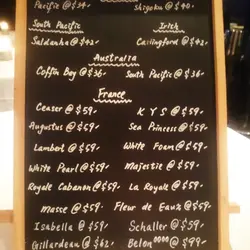 Pacific @ $34- Shigoku @ $40-
South Pacific Irish
Saldanha @ $42- Carlingford @ $42-
Australia
Coffin Bay @ $36- South Pacific @ $36-
France
Ceaser @ $59- K Y S @ $59-
Augustus @ $59- Sea Princess @ $59-
Lambert @ $59- White Foam @ $59-
White Pearl @ $59- Majestic @ $59-
Royale Cabanon @ $59- La Royale @ $59-
Masse @ $59- Fleur de Eaux @ $59-
Isabella @ $59- Schaller @ $59-
Gillardeau @ $62- Belon⁰⁰⁰⁰ @ $99-